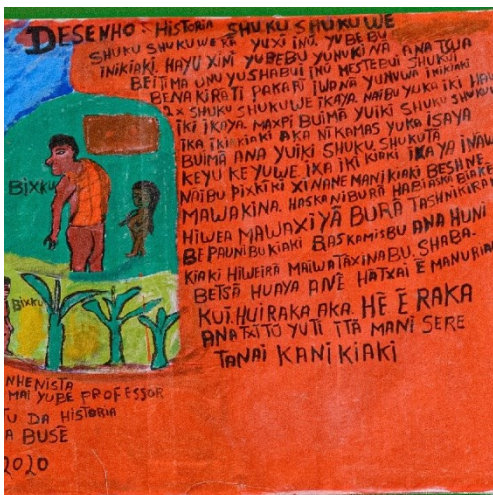 DESENHO : HISTORIA SHUKU SHUKUWE
SHUKU SHUKUWE RA YUXI INŨ YUBEBU
INIKIAKI. HAYU XINI YUBEBU YUNUKINA ANA TSUA
BEITIMA UNU YUSHABUI INŨ MESTEBUI SHUKU
BENAKIRATI PAKARI IWANA YUNUWA INIKIAKI
SHUKU SHUKUWE IKAYA. NAIBU YUKA IKI HAU
IKI IKAYA. MAXPI BUIMÃ YUIKI SHUKU SHUKUW
IKA IKI KIAKI AKA NIKAMAS YUKA ISAYA
BUIMÃ ANA YUIKI SHUKU SHUKUTA
KEYU KEYUWE IKA IKI KIAKI IKAYA INAW
NAIBU PIXKIKI XINANE MANI KIAKI BESHNE
MAWAKINA. HASKANIBURÃ HABIASKA BIAKE
HIWEA MAWAXIYÃ BURÃ TASHNIKIRA
BEPAUNIBUKIAKI BASKAMISBU ANA HUNI
KIAKI HIWEIRÃ MAIWA TÃXINABU. SHABA.
BETSÃ HUAYA ANẼ HATXAI Ẽ MANURIA
KUI. HUIRAKA AKA. HẼ Ẽ RAKA
ANA TXITŨ YUTI ITÃ MANI SERE
TANAI KANIKIAKI
BIXKU
BIXKU
NHENISTA
MAI YUBE PROFESSOR
TU DA HISTORIA
A BUSẼ
2020